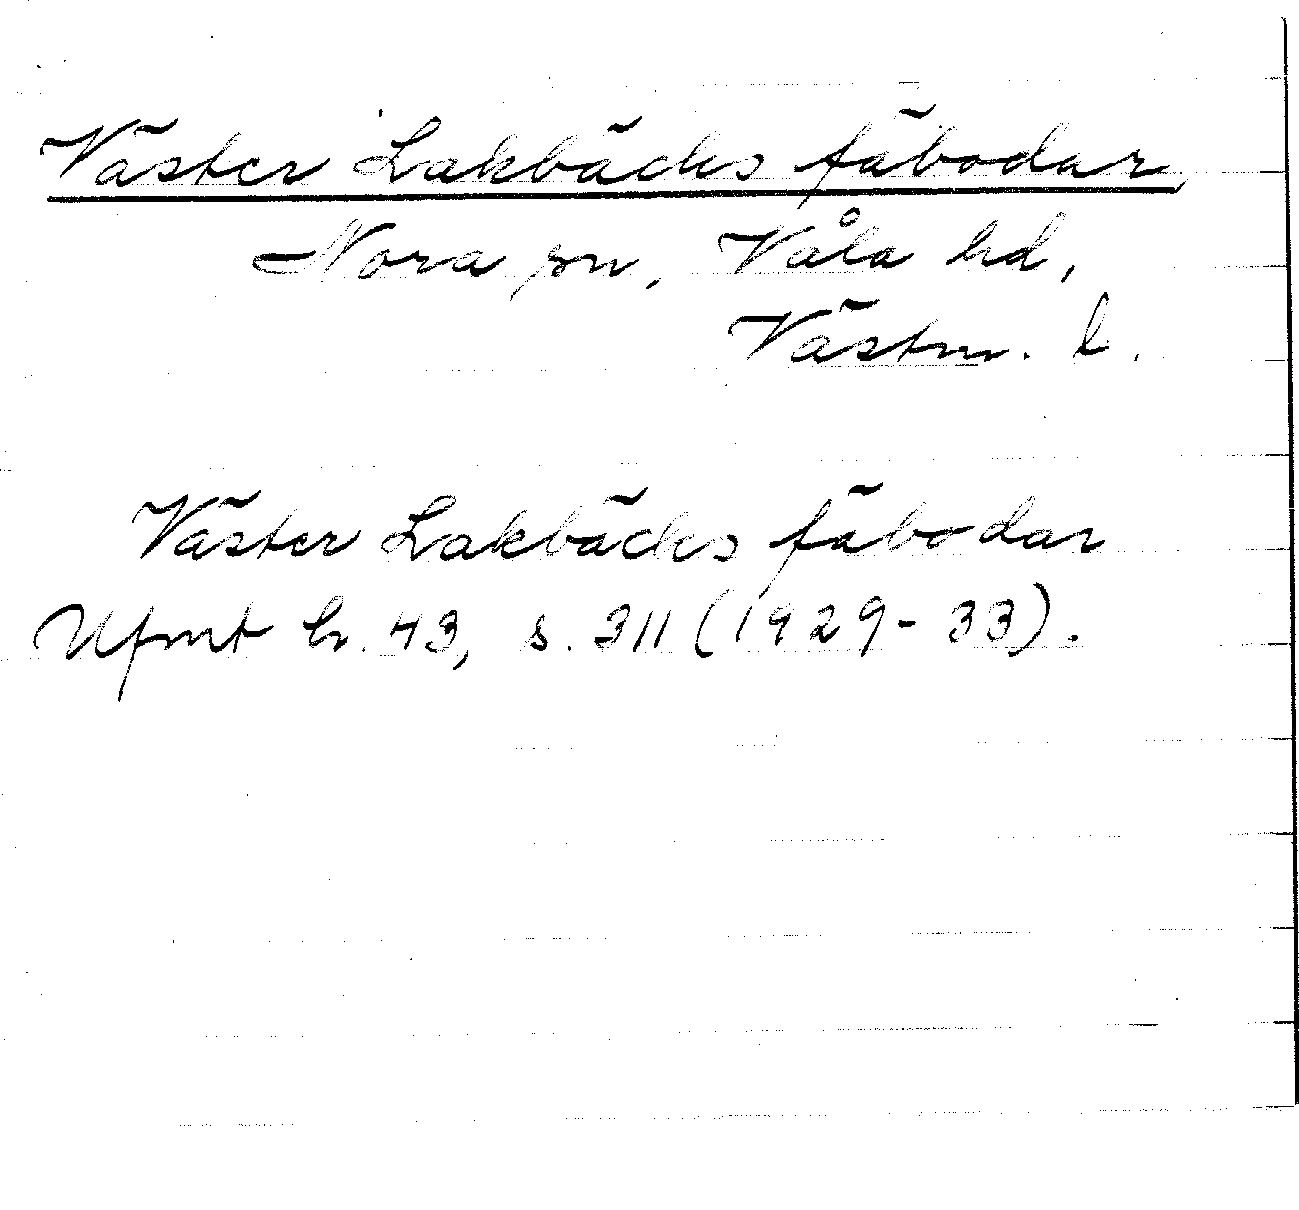 Väster Lakbäcks fäbodar
Nora sn, Våla hd,
Västm. l.
Väster Lakbäcks fäbodar
Ufmt h. 43, s. 311 (1929-33).